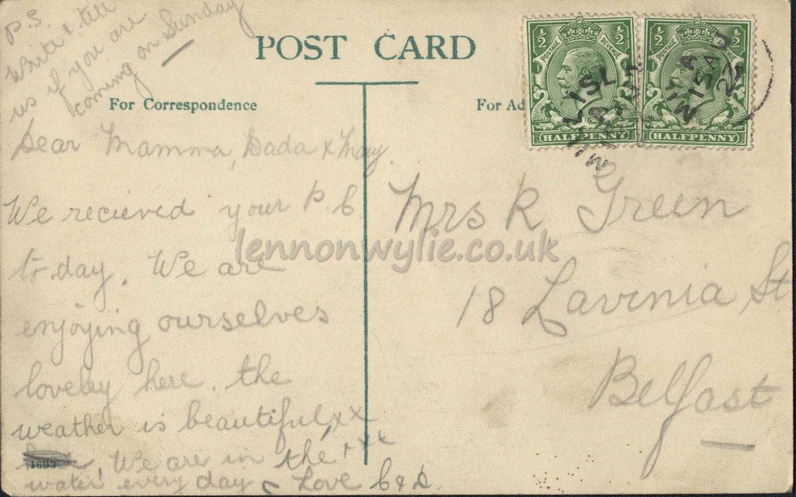 P.S.
Write & tell
us if you are
coming on Sunday
POST CARD
For Correspondence
For Ad
1/2 1/2
HALFPENNY
1/2 1/2
HALFPENNY
Dear Mamma, Dada & May
We recieved your P.C
to day. We are
enjoying ourselves
loveley here. the
weather is beautiful xx
We are in the xxx
water! every day Love C & D.
1693
Mrs R Green
18 Lavinia St
Belfast
lennonwylie.co.uk